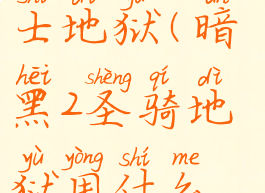 士地狱(暗
hēi shèng qí dì
黑2圣骑地
yù yòng shí me
狱用什么